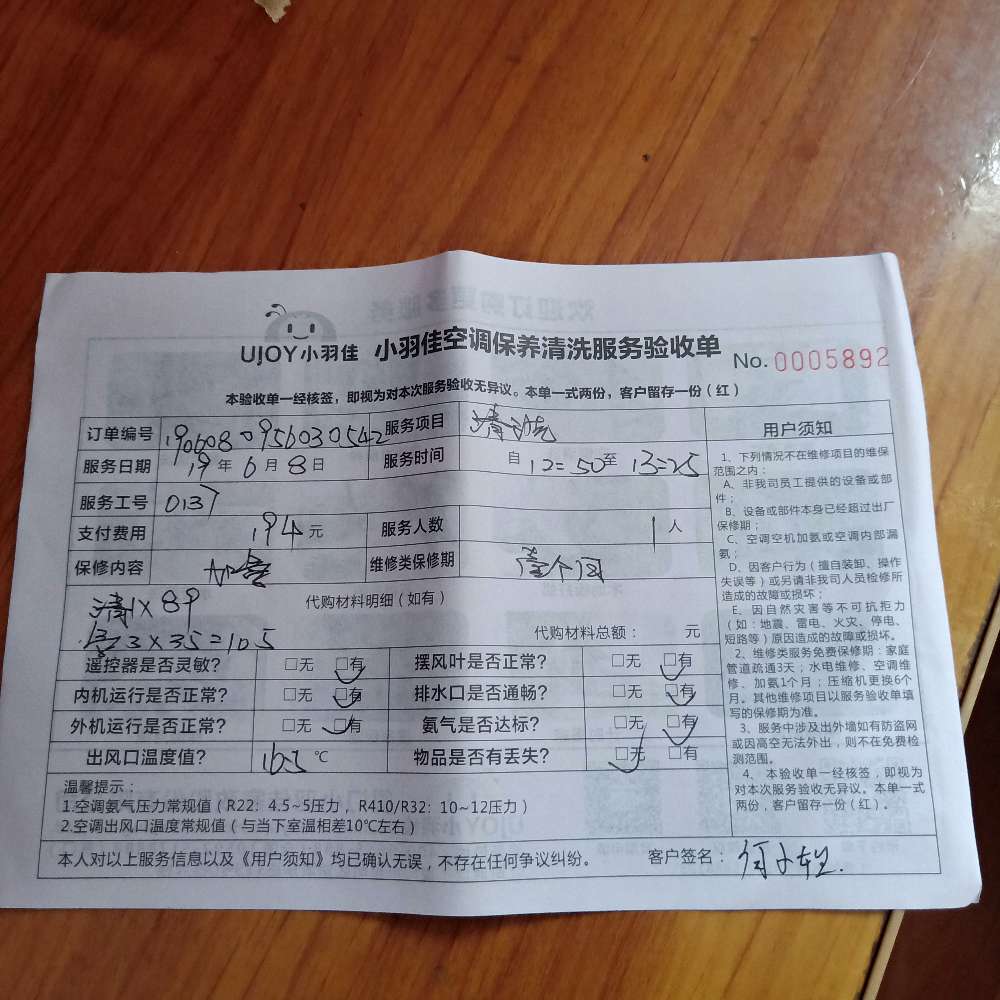 UJOY小羽佳 小羽佳空调保养清洗服务验收单 No. 0005892
本验收单一经核签，即视为对本次服务验收无异议。本单一式两份，客户留存一份（红）
订单编号 1906080956030542 服务项目 清洗
服务日期 19 年 6 月 8 日 服务时间 自 12:50 至 13:25
服务工号 0137
支付费用 194 元 服务人数 1 人
保修内容 加氨 维修类保修期 壹个月
代购材料明细（如有）
清1×89
氨3×35=105
代购材料总额： 元
遥控器是否灵敏？ □无 □有 摆风叶是否正常？ □无 □有
内机运行是否正常？ □无 □有 排水口是否通畅？ □无 □有
外机运行是否正常？ □无 □有 氨气是否达标？ □无 □有
出风口温度值？ 16.5 ℃ 物品是否有丢失？ □无 □有
温馨提示：
1.空调氨气压力常规值（R22：4.5~5压力，R410/R32：10~12压力）
2.空调出风口温度常规值（与当下室温相差10℃左右）
本人对以上服务信息以及《用户须知》均已确认无误，不存在任何争议纠纷。 客户签名：
用户须知
1、下列情况不在维修项目的维保
范围之内：
A、非我司员工提供的设备或部
件；
B、设备或部件本身已经超过出厂
保修期；
C、空调空机加氨或空调内部漏
氨；
D、因客户行为（擅自装卸、操作
失误等）或另请非我司人员检修所
造成的故障或损坏；
E、因自然灾害等不可抗拒力
（如：地震、雷电、火灾、停电、
短路等）原因造成的故障或损坏。
2、维修类服务免费保修期：家庭
管道疏通3天；水电维修、空调维
修、加氨1个月；压缩机更换6个
月。其他维修项目以服务验收单填
写的保修期为准。
3、服务中涉及出外墙如有防盗网
或因高空无法外出，则不在免费检
测范围。
4、本验收单一经核签，即视为
对本次服务验收无异议。本单一式
两份，客户留存一份（红）。